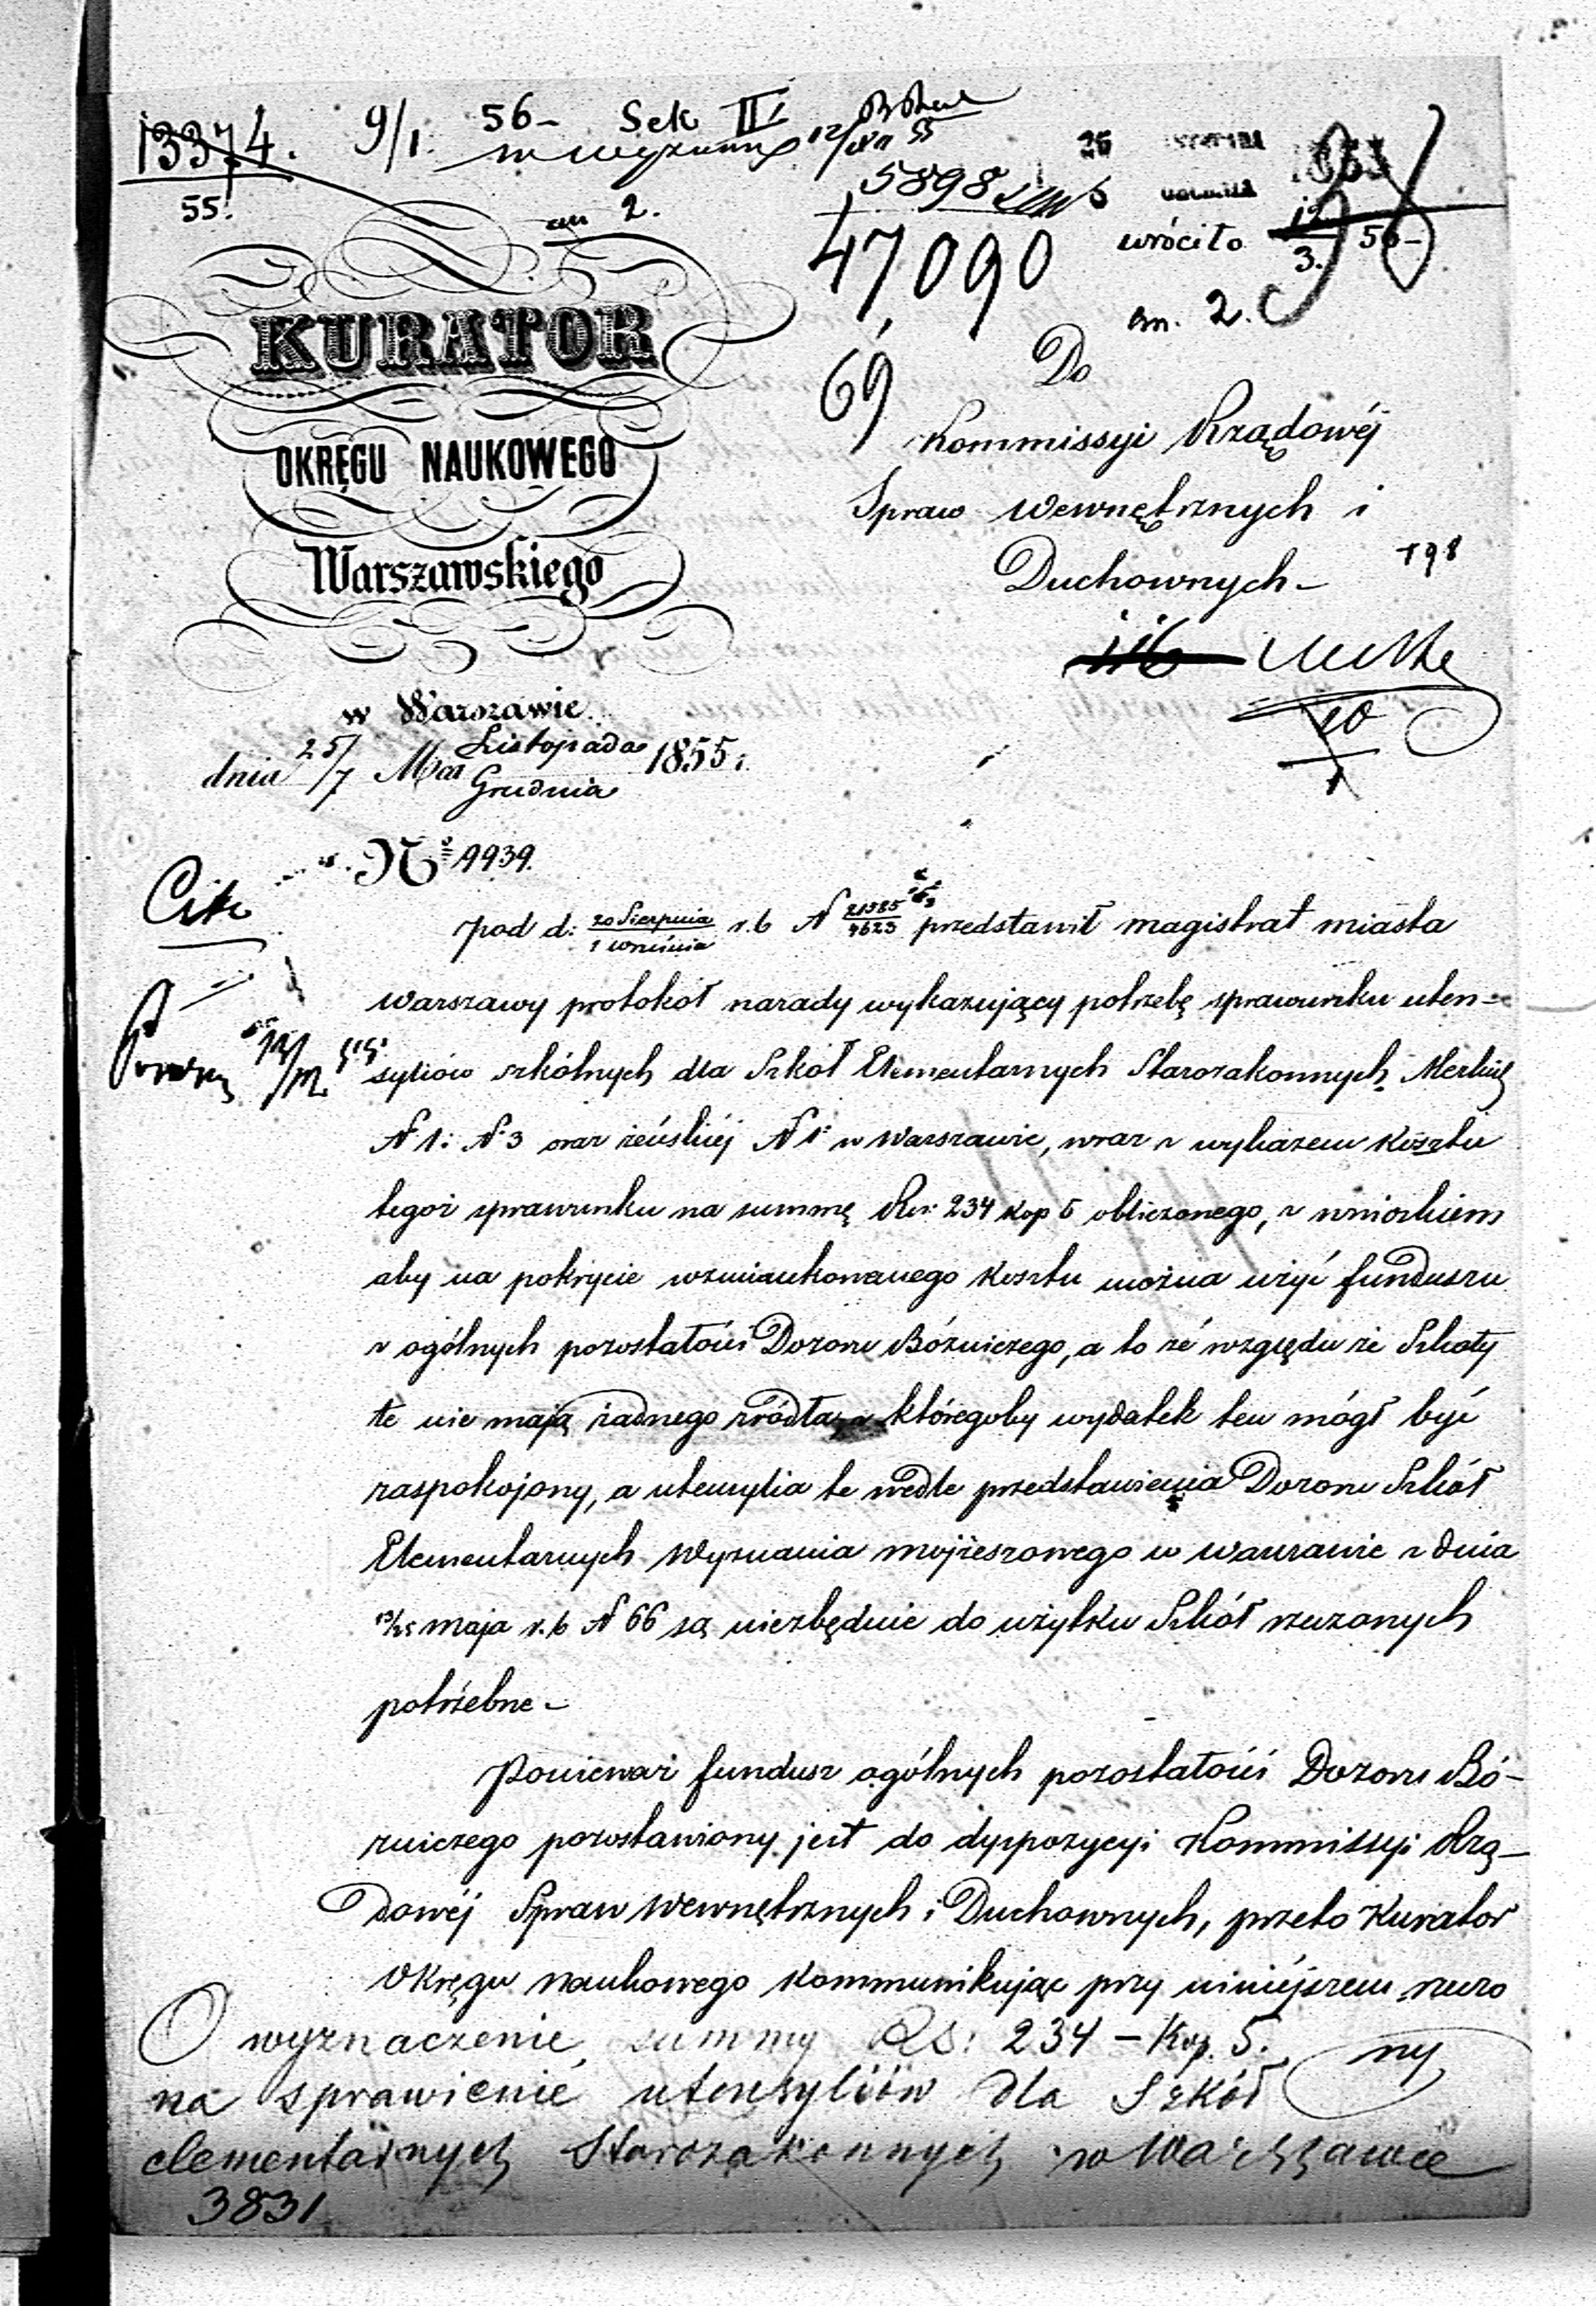 13374.
55.
9/1. 56- Sek II
12/XII 55
an 2.
5898
47090
69
26 1855
wróciło 12/3. 56-
an. 2.
KURATOR
OKRĘGU NAUKOWEGO
Warszawskiego
w Warszawie
dnia 25/7 Mca Listopada Grudnia 1855 r.
№ 9939.
Do
Kommissyi Rządowéj
Spraw Wewnętrznych i
Duchownych-
198
116
10
1
Cito
pod d: 20 Sierpnia / 1 Września r. b N 21385/4623 przedstawił magistrat miasta
Warszawy protokół narady wykazujący potrzebę sprawunku uten-
syliów szkólnych dla Szkół Elementarnych Starozakonnych Męzkiéj
N 1: N: 3 oraz żeńskiéj N 1: w Warszawie, wraz z wykazem kosztu
tegoż sprawunku na summę Rsr: 234 kop 5 obliczonego, z wnioskiem
aby na pokrycie wzmiankowanego kosztu można użyć funduszu
z ogólnych pozostałości Dozoru Bóżniczego, a to ze względu że Szkoły
te nie mają żadnego źródła z któregoby wydatek ten mógł być
zaspokojony, a utensylia te wedle przedstawienia Dozoru Szkół
Elementarnych Wyznania mojżeszowego w Warszawie z dnia
13/25 maja r. b N 66 są niezbędnie do użytku Szkół rzeczonych
potrzebne-
Ponieważ fundusz ogólnych pozostałości Dozoru Bó-
żniczego pozostawiony jest do dyspozycyi Kommissyi Rzą-
dowéj Spraw Wewnętrznych i Duchownych, przeto Kurator
Okręgu Naukowego kommunikując przy niniéjszem rzeczo
ny
O wyznaczenie summy RS: 234 - Kop. 5.
na sprawienie utensyliów dla Szkół
elementarnych Starozakonnych w Warszawie
3831